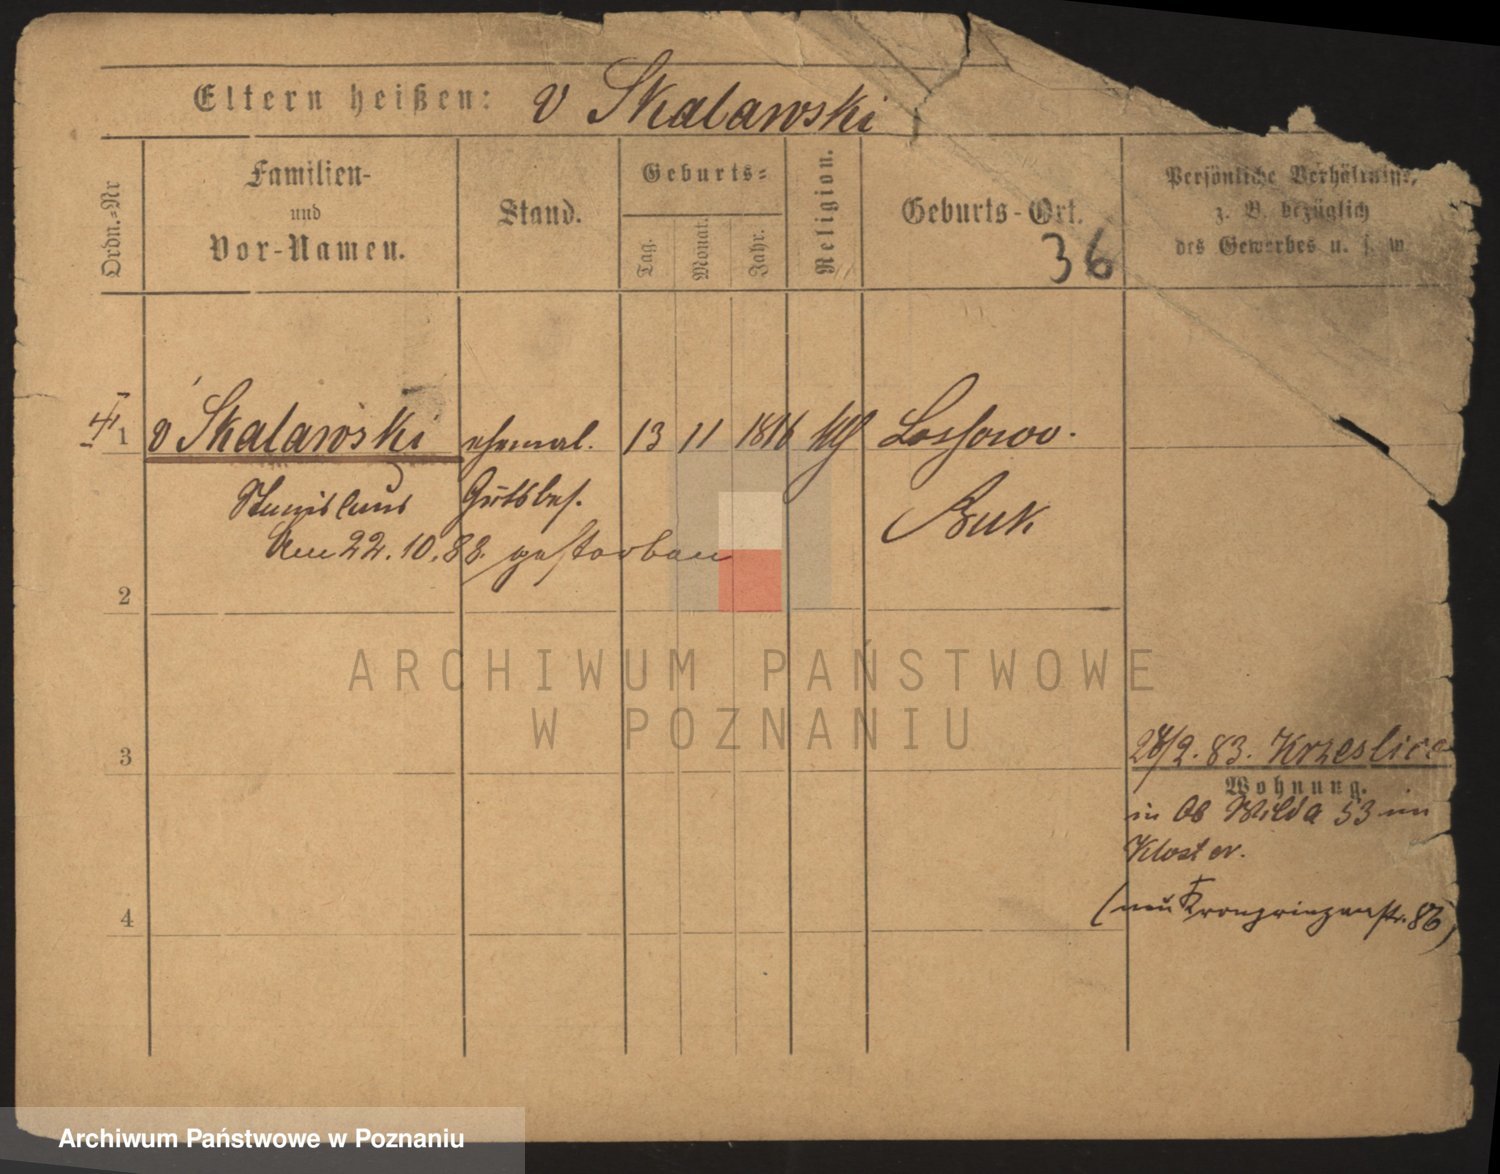 Eltern heißen: v Skalawski
Ordn.-Nr
Familien-
und
Vor-Namen.
Stand.
Geburts-
Tag.
Monat.
Jahr.
Religion.
Geburts-Ort.
36
Persönliche Verhältnisse,
z. B. bezüglich
des Gewerbes u. s. w.
1 v Skalawski ehemal. 13 11 1816 kth
Stanislaus Gutsbes. Buk
Am 22.10.88. gestorben
2
ARCHIWUM PAŃSTWOWE
W POZNANIU
3
/2.83. Krzeslice
Wohnung.
in Ob Wilda 53 im
Kloster.
(neu Kronprinzenstr. 86)
4
Archiwum Państwowe w Poznaniu